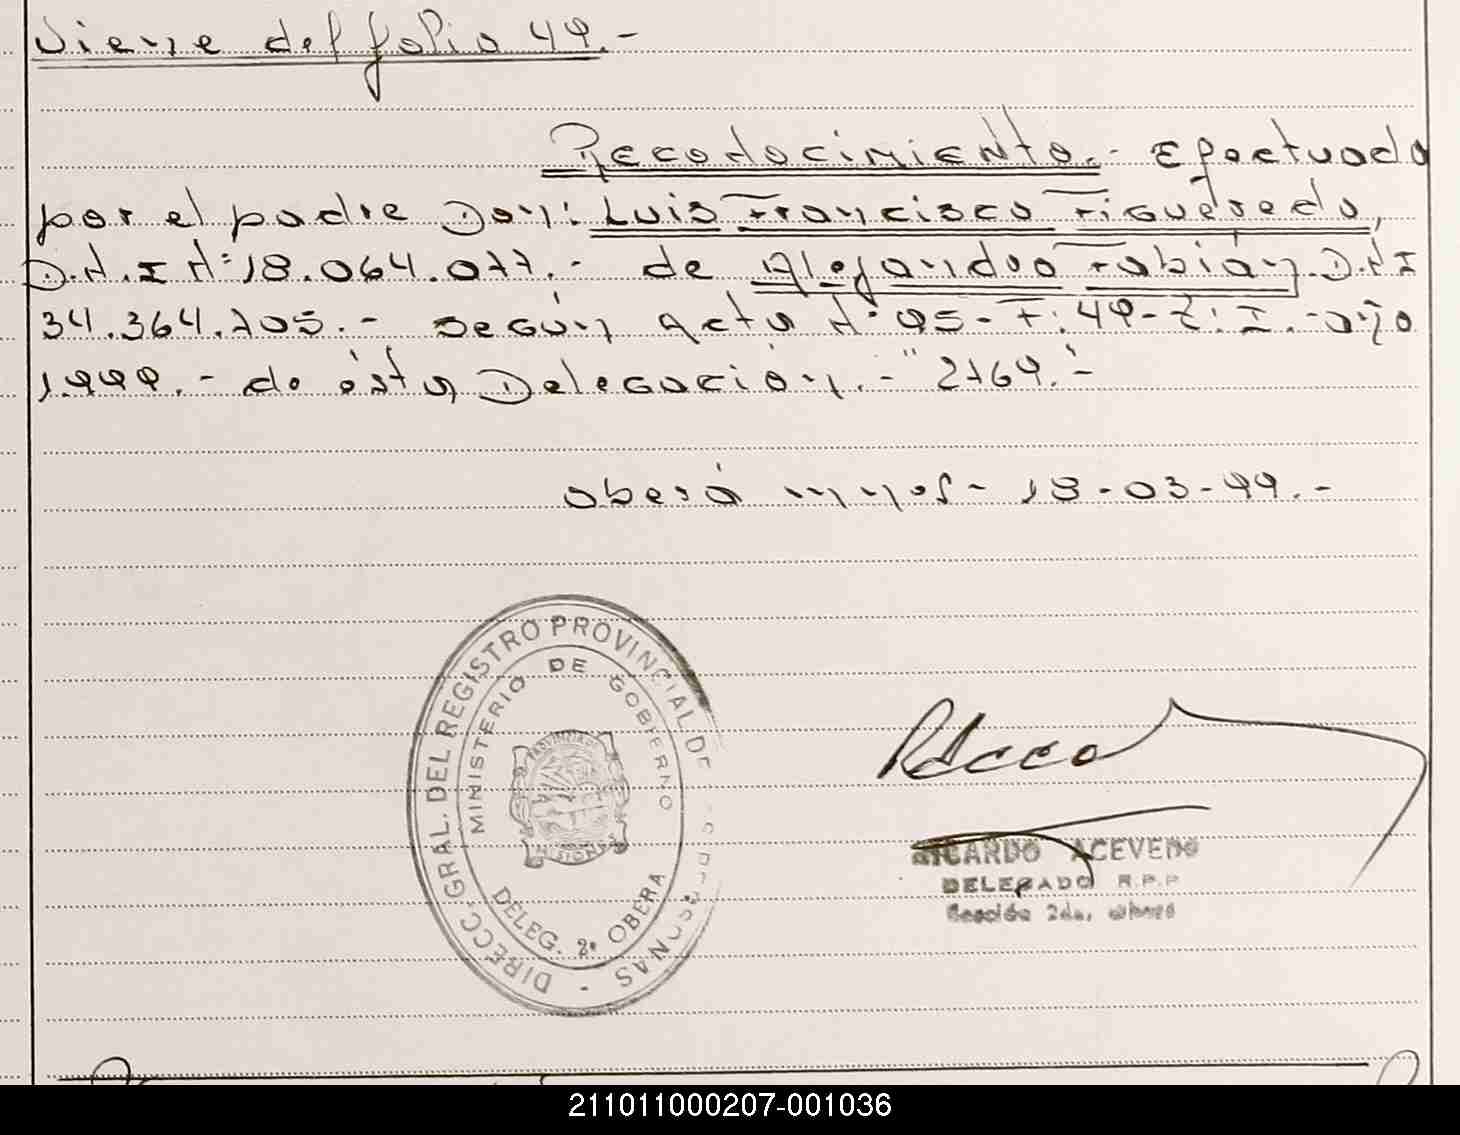 Viene del folio 49.-
Reconocimiento.- Efectuado
por el padre Don: Luis Francisco Figueredo,
D.N.I N° 18.064.077.- de Alejandro Fabián. D.N.I
34.364.705.- según acta N° 95- F: 49- T: I.- año
1.999.- de ésta Delegación.- "2169".-
Oberá mnes- 18-03-99.-
DIRECC. GRAL. DEL REGISTRO PROVINCIAL DE PERSONAS -
MINISTERIO DE GOBIERNO
PROVINCIA DE
MISIONES
DELEG. 2° OBERA
RICARDO ACEVEDO
DELEGADO R.P.P
Sección 2da. Oberá
211011000207-001036